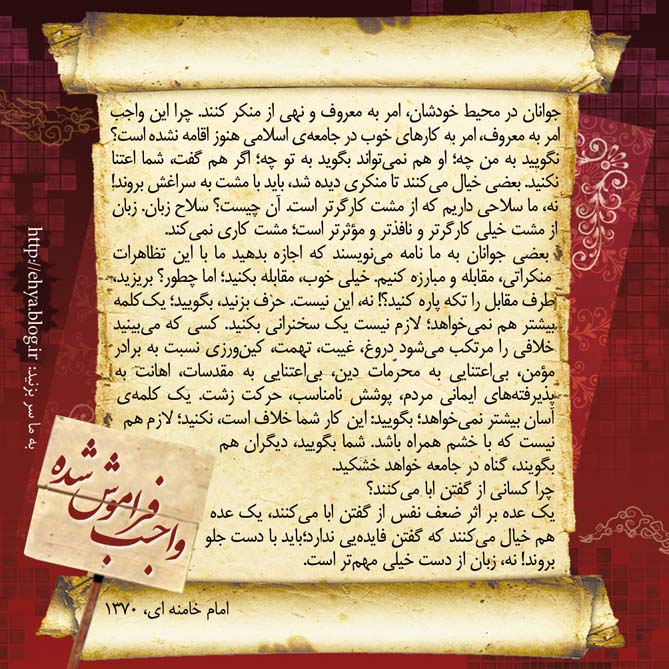 جوانان در محیط خودشان، امر به معروف و نهی از منکر کنند. چرا این واجب
امر به معروف، امر به کارهای خوب در جامعه‌ی اسلامی هنوز اقامه نشده است؟
نگویید به من چه؛ او هم نمی‌تواند بگوید به تو چه؛ اگر هم گفت، شما اعتنا
نکنید. بعضی خیال می‌کنند تا منکری دیده شد، باید با مشت به سراغش بروند!
نه، ما سلاحی داریم که از مشت کارگرتر است. آن چیست؟ سلاح زبان. زبان
از مشت خیلی کارگرتر و نافذتر و مؤثرتر است؛ مشت کاری نمی‌کند.
بعضی جوانان به ما نامه می‌نویسند که اجازه بدهید ما با این تظاهرات
منکراتی، مقابله و مبارزه کنیم. خیلی خوب، مقابله بکنید؛ اما چطور؟ بریزید،
طرف مقابل را تکه پاره کنید؟! نه، این نیست. حزف بزنید، بگویید؛ یک‌کلمه
بیشتر هم نمی‌خواهد؛ لازم نیست یک سخنرانی بکنید. کسی که می‌بینید
خلافی را مرتکب می‌شود دروغ، غیبت، تهمت، کین‌ورزی نسبت به برادر
مؤمن، بی‌اعتنایی به محرّمات دین، بی‌اعتنایی به مقدسات، اهانت به
پذیرفته‌های ایمانی مردم، پوشش نامناسب، حرکت زشت. یک کلمه‌ی
آسان بیشتر نمی‌خواهد؛ بگویید: این کار شما خلاف است، نکنید؛ لازم هم
نیست که با خشم همراه باشد. شما بگویید، دیگران هم
بگویند، گناه در جامعه خواهد خشکید.
چرا کسانی از گفتن ابا می‌کنند؟
یک عده بر اثر ضعف نفس از گفتن ابا می‌کنند، یک عده
هم خیال می‌کنند که گفتن فایده‌یی ندارد؛باید با دست جلو
بروند! نه، زبان از دست خیلی مهم‌تر است.
امام خامنه ای، ۱۳۷۰
واجب فراموش شده
به ما سر بزنید: http://ehya.blog.ir